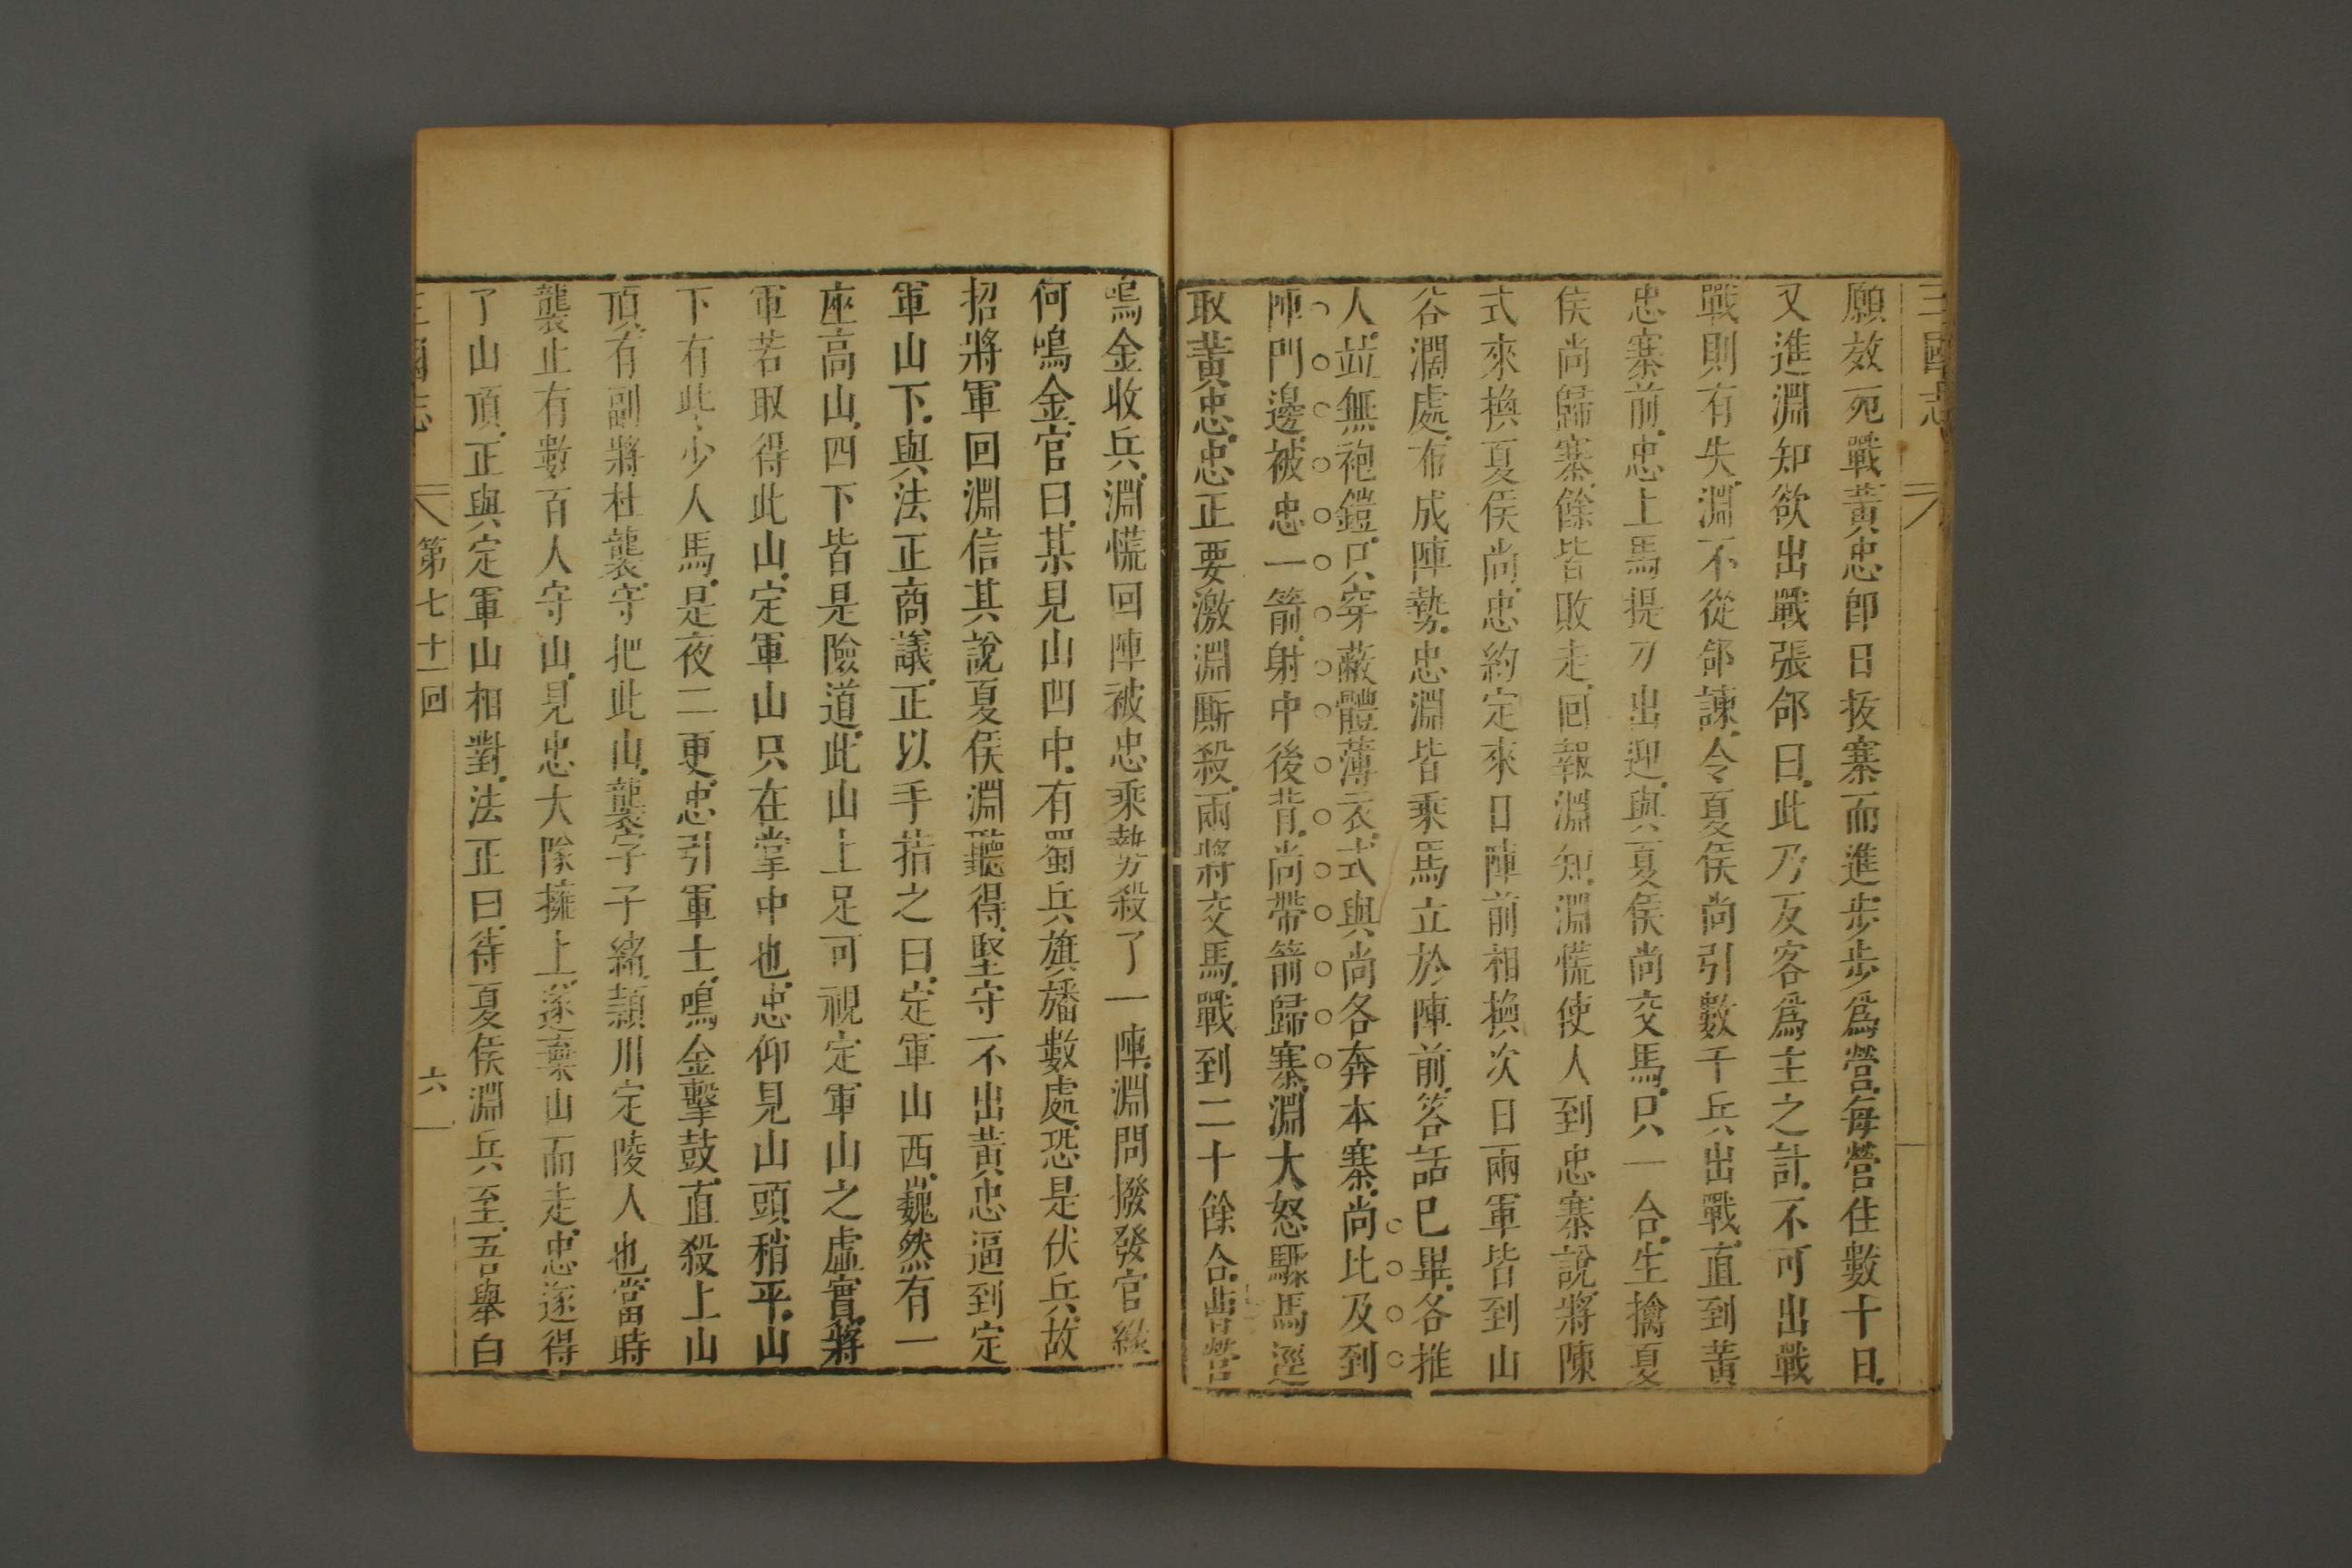 三國志
願效死戰黃忠卽日拔寨而進步步爲營每營住數十日
又進淵知欲出戰張郃曰此乃反客爲主之計不可出戰
戰則有失淵不從郃諫令夏侯尚引數千兵出戰直到黃
忠寨前忠上馬提刀出迎與夏侯尚交馬只一合生擒夏
侯尚歸寨餘皆敗走回報淵知淵慌使人到忠寨說將陳
式來換夏侯尚忠約定來日陣前相換次日兩軍皆到山
谷濶處布成陣勢忠淵皆乘馬立於陣前答話已畢各推
人竝無袍鎧只穿蔽體薄衣式與尚各奔本寨尚比及到
陣門邊被忠一箭射中後背尚帶箭歸寨淵大怒驟馬逕
取黃忠忠正要激淵厮殺兩將交馬戰到二十餘合曹營
鳴金收兵淵慌回陣被忠乘勢殺了一陣淵問撥發官緣
何鳴金官曰某見山凹中有蜀兵旗旛數處恐是伏兵故
招將軍回淵信其說夏侯淵聽得堅守不出黃忠逼到定
軍山下與法正商議正以手指之曰定軍山西巍然有一
座高山四下皆是險道此山上足可視定軍山之虛實將
軍若取得此山定軍山只在掌中也忠仰見山頭稍平山
下有些少人馬是夜二更忠引軍士鳴金擊鼓直殺上山
頂有副將杜襲守把此山襲字子緒潁川定陵人也當時
襲止有數百人守山見忠大隊擁上遂棄山而走忠遂得
了山頂正與定軍山相對法正曰待夏侯淵兵至吾舉白
三國志 第七十一回 六